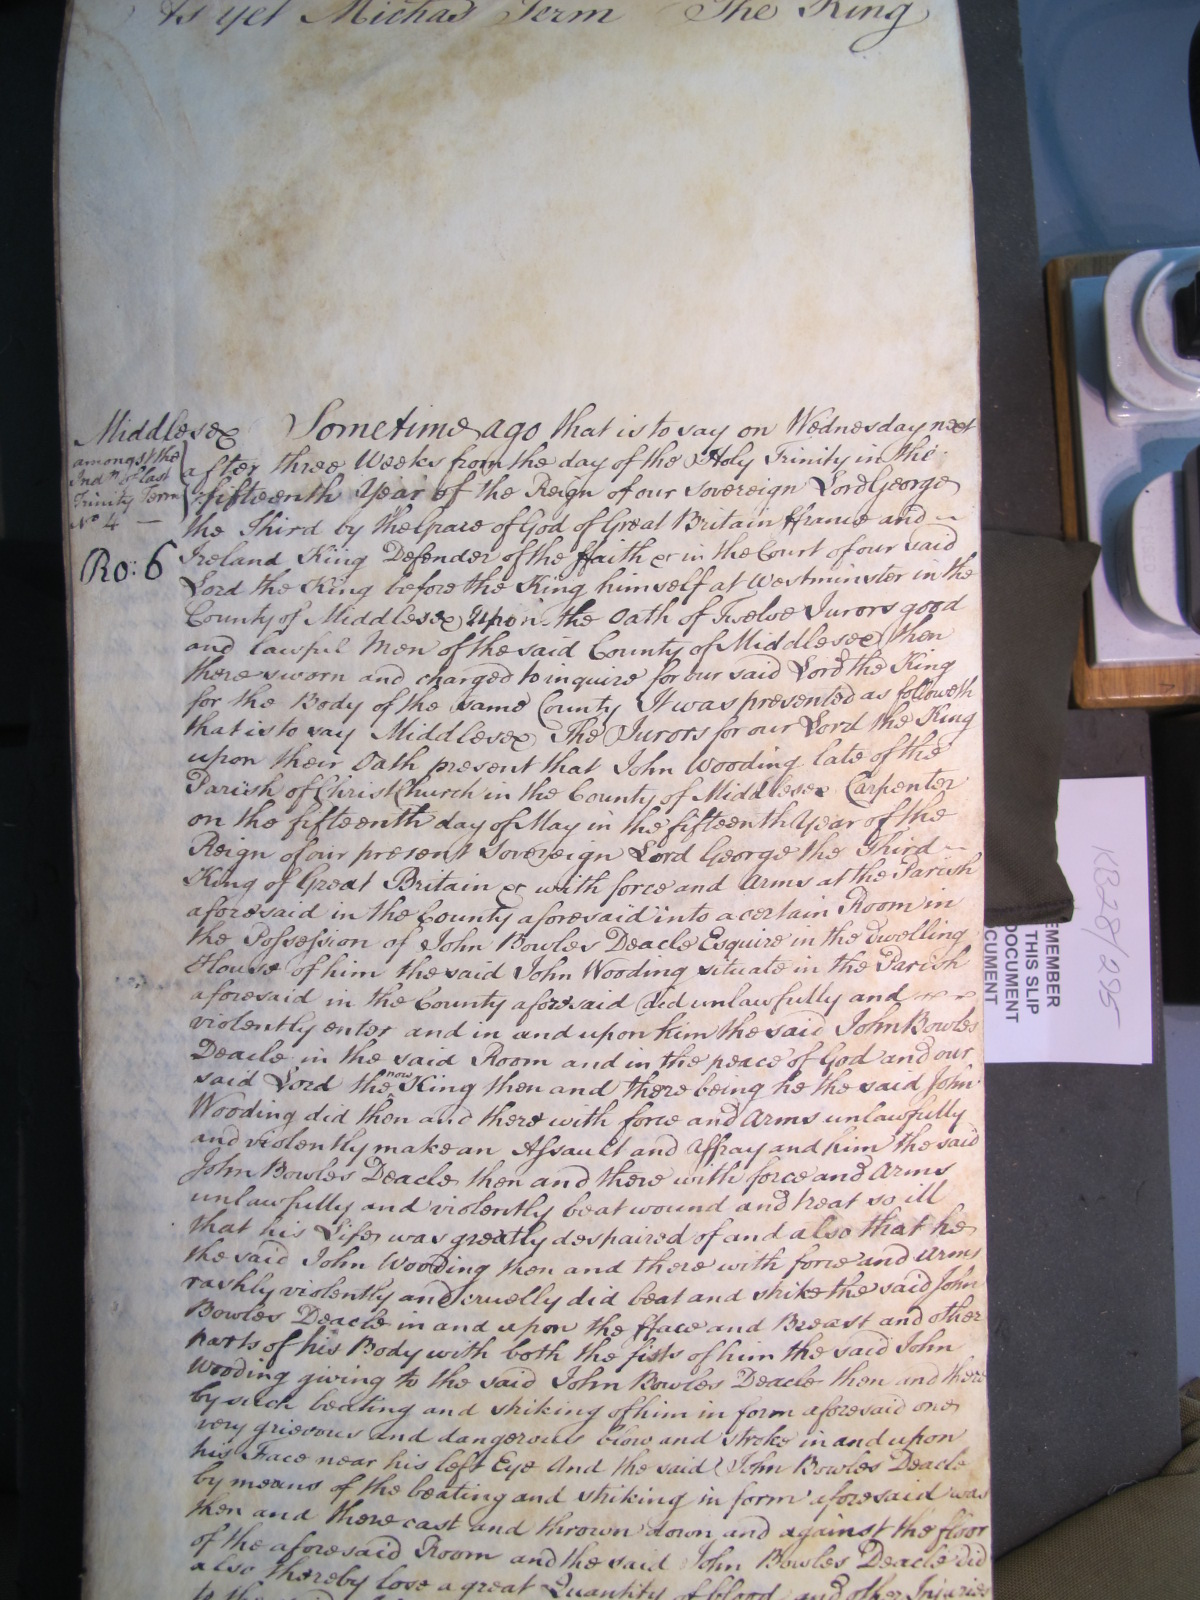 As yet Michas Term The King
Middlesex Sometime ago that is to say on Wednesday next
amongst the
Indts of last
Trinity Term
No 4 —
Ro: 6
after three Weeks from the day of the Holy Trinity in the
fifteenth Year of the Reign of our sovereign Lord George
the Third by the Grace of God of Great Britain ffrance and
Ireland King Defender of the ffaith &c in the Court of our said
Lord the King before the King himself at Westminster in the
County of Middlesex Upon the Oath of Twelve Jurors good
and lawful Men of the said County of Middlesex then
there sworn and charged to inquire for our said Lord the King
for the Body of the same County It was presented as followeth
that is to say Middlesex The Jurors for our Lord the King
upon their Oath present that John Wooding late of the
Parish of Christ Church in the County of Middlesex Carpenter
on the fifteenth day of May in the fifteenth Year of the
Reign of our present Sovereign Lord George the Third
King of Great Britain &c with force and Arms at the Parish
aforesaid in the County aforesaid into a certain Room in
the Possession of John Bowles Deacle Esquire in the dwelling
House of him the said John Wooding situate in the Parish
aforesaid in the County aforesaid did unlawfully and
violently enter and in and upon him the said John Bowles
Deacle in the said Room and in the peace of God and our
said Lord the now King then and there being he the said John
Wooding did then and there with force and Arms unlawfully
and violently make an Assault and Affray and him the said
John Bowles Deacle then and there with force and Arms
unlawfully and violently beat wound and treat so ill
that his Life was greatly despaired of and also that he
the said John Wooding then and there with force and Arms
rashly violently and cruelly did beat and strike the said John
Bowles Deacle in and upon the fface and Breast and other
parts of his Body with both the fists of him the said John
Wooding giving to the said John Bowles Deacle then and there
by such beating and striking of him in form aforesaid one
very grievous and dangerous blow and stroke in and upon
his Face near his left Eye And the said John Bowles Deacle
by means of the beating and striking in form aforesaid was
then and there cast and thrown down and against the floor
of the aforesaid Room and the said John Bowles Deacle did
also thereby lose a great Quantity of blood and other Injuries
KB28/295
EMEMBER
THIS SLIP
DOCUMENT
CUMENT